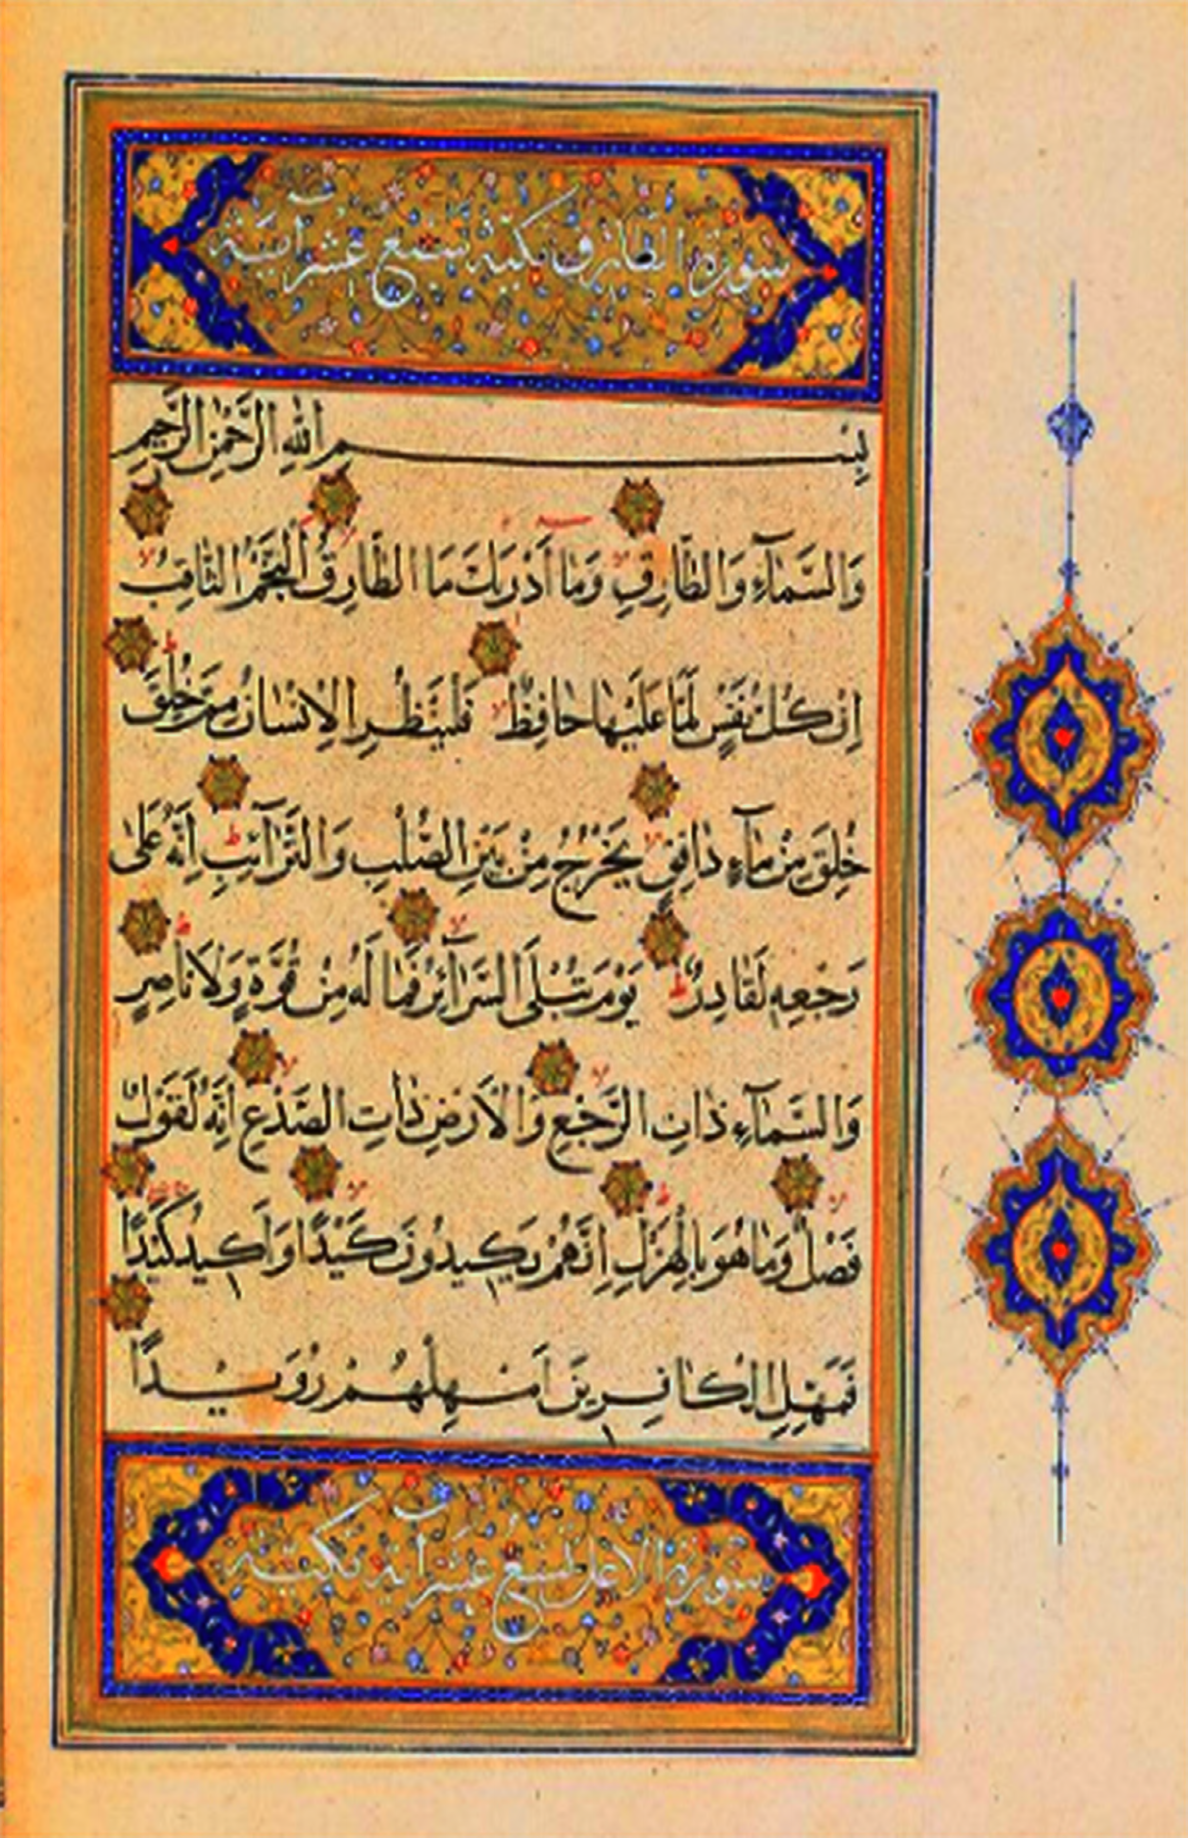 سورة الطارق مكية سبع عشر آية
بِسْمِ اللهِ الرَّحْمٰنِ الرَّحِيمِ
وَالسَّمَآءِ وَالطَّارِقِ وَمَآ أَدْرٰىكَ مَا الطَّارِقُ النَّجْمُ الثَّاقِبُ
اِنْ كُلُّ نَفْسٍ لَمَّا عَلَيْهَا حَافِظٌ فَلْيَنْظُرِ الْاِنْسَانُ مِمَّ خُلِقَ
خُلِقَ مِنْ مَآءٍ دَافِقٍ يَخْرُجُ مِنْ بَيْنِ الصُّلْبِ وَالتَّرَآئِبِ اِنَّهُ عَلٰى
رَجْعِهِ لَقَادِرٌ يَوْمَ تُبْلَى السَّرَآئِرُ فَمَا لَهُ مِنْ قُوَّةٍ وَلَا نَاصِرٍ
وَالسَّمَآءِ ذَاتِ الرَّجْعِ وَالْاَرْضِ ذَاتِ الصَّدْعِ اِنَّهُ لَقَوْلٌ
فَصْلٌ وَمَا هُوَ بِالْهَزْلِ اِنَّهُمْ يَكِيدُونَ كَيْدًا وَاَكِيدُ كَيْدًا
فَمَهِّلِ الْكَافِرِينَ اَمْهِلْهُمْ رُوَيْدًا
سورة الاعلى تسع عشر آية مكية